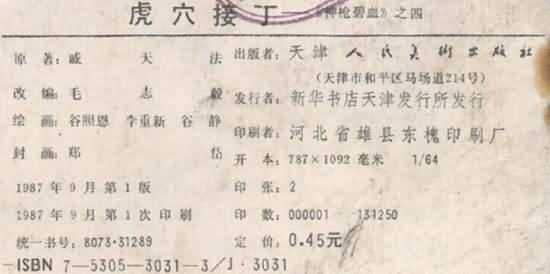 虎穴接丁——《神枪碧血》之四
原著：戚天法
改编：毛志毅
绘画：谷照恩 李重新 谷静
封画：郑岱
1987年9月第1版
1987年9月第1次印刷
统一书号：8073·31289
出版者：天津人民美术出版社
（天津市和平区马场道214号）
发行者：新华书店天津发行所发行
印刷者：河北省雄县东槐印刷厂
开本：787×1092毫米 1/64
印张：2
印数：000001 134250
定价：0.45元
ISBN 7—5305—3031—3/J·3031